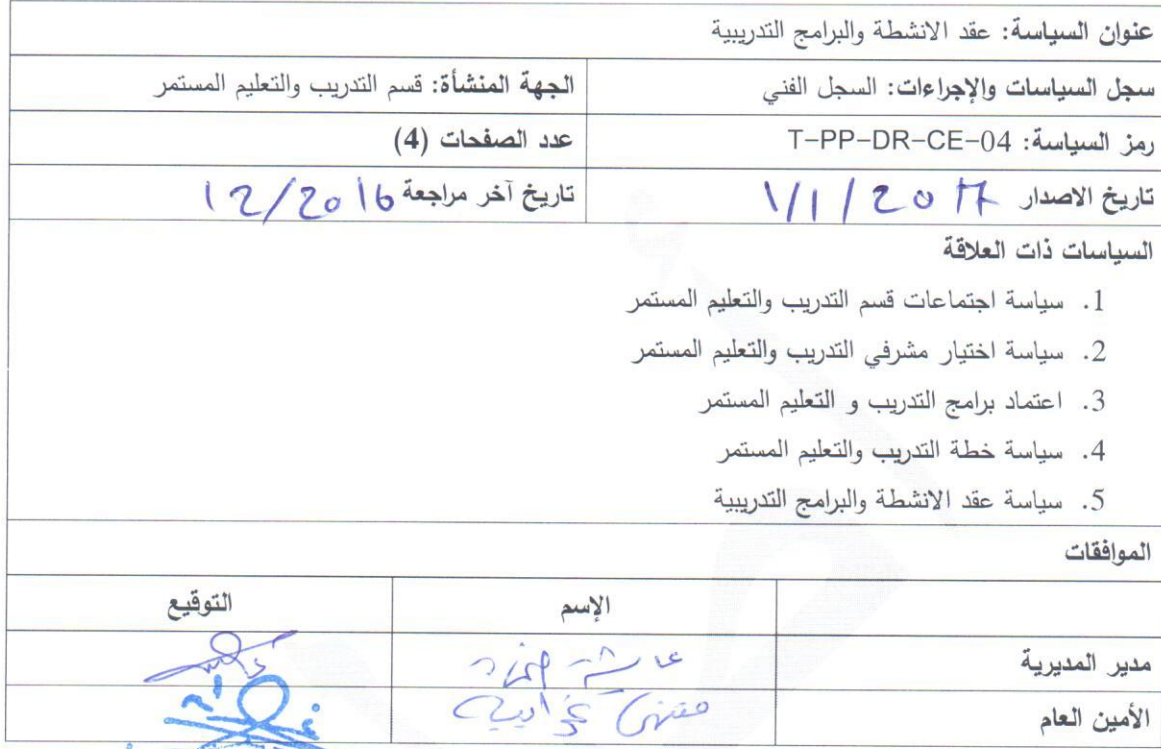 عنوان السياسة: عقد الانشطة والبرامج التدريبية
سجل السياسات والإجراءات: السجل الفني
الجهة المنشأة: قسم التدريب والتعليم المستمر
رمز السياسة: T-PP-DR-CE-04
عدد الصفحات (4)
تاريخ الاصدار 1/1/2017
تاريخ آخر مراجعة 12/2016
السياسات ذات العلاقة
1. سياسة اجتماعات قسم التدريب والتعليم المستمر
2. سياسة اختيار مشرفي التدريب والتعليم المستمر
3. اعتماد برامج التدريب و التعليم المستمر
4. سياسة خطة التدريب والتعليم المستمر
5. سياسة عقد الانشطة والبرامج التدريبية
الموافقات
الإسم
التوقيع
مدير المديرية
الأمين العام